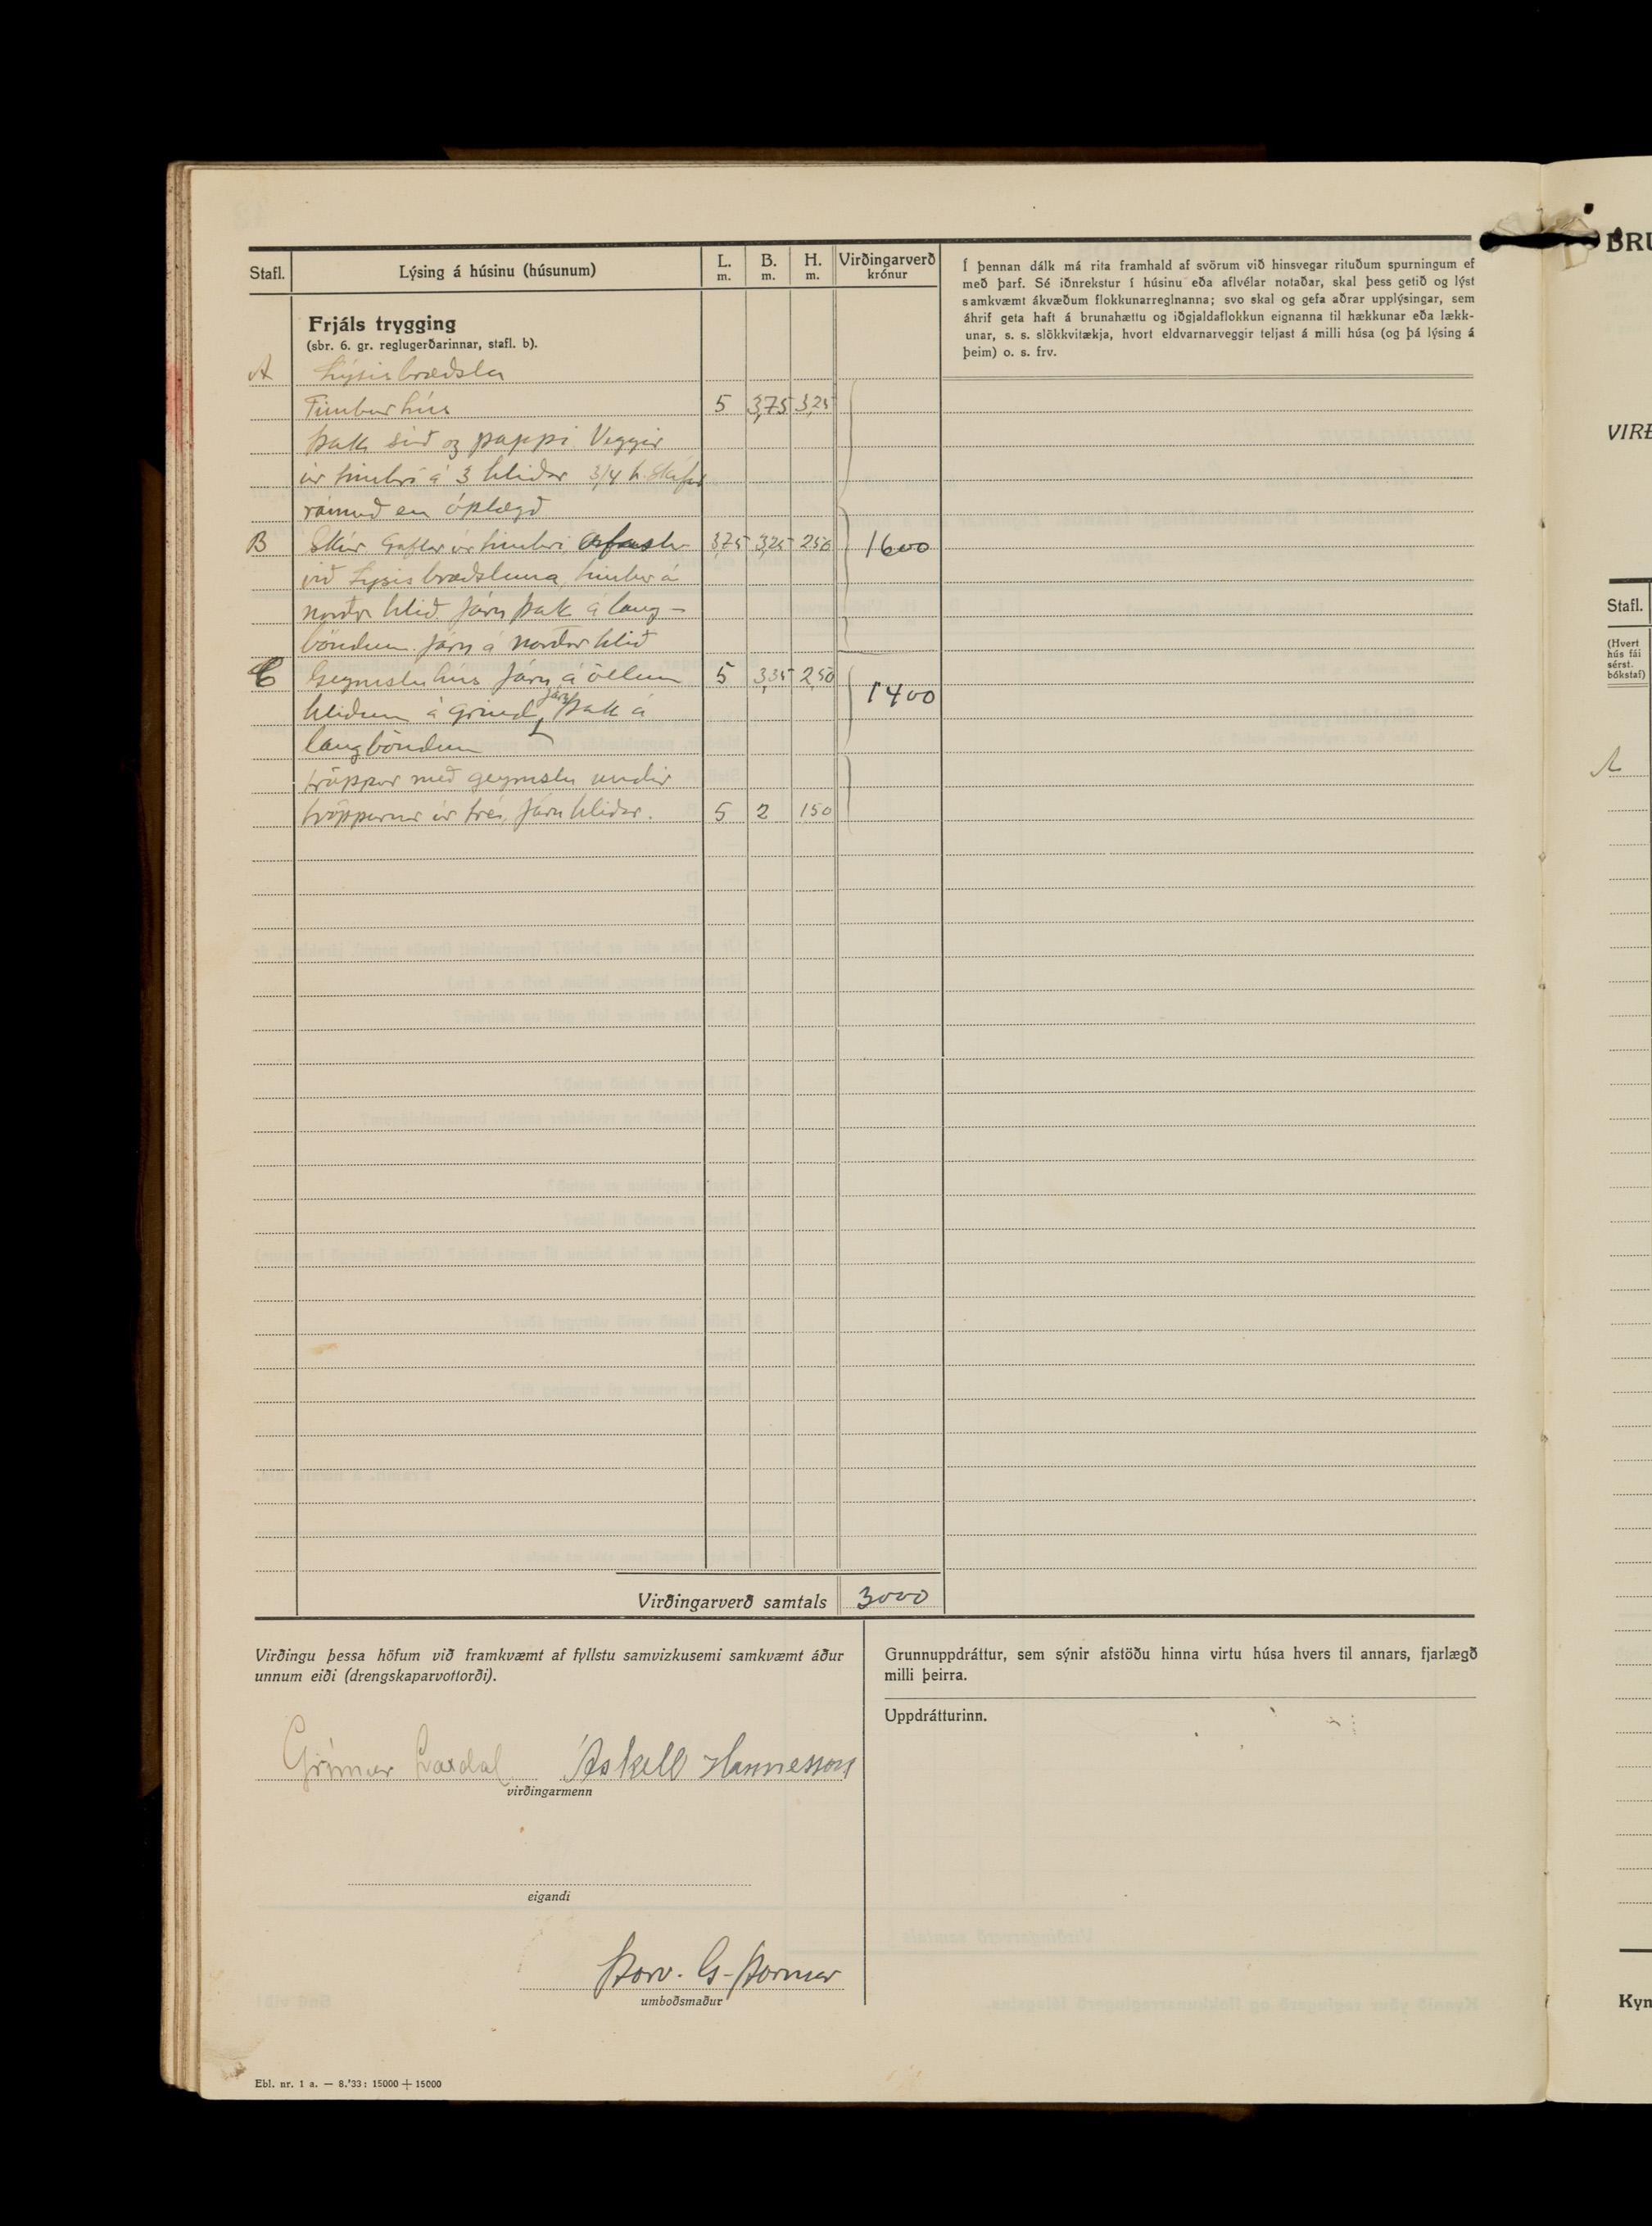 Stafl. Lýsing á húsinu (húsunum) L. m. B. m. H. m. Virðingarverð krónur
Í þennan dálk má rita framhald af svörum við hinsvegar rituðum spurningum ef
með þarf. Sé iðnrekstur í húsinu eða aflvélar notaðar, skal þess getið og lýst
samkvæmt ákvæðum flokkunarreglnanna; svo skal og gefa aðrar upplýsingar, sem
áhrif geta haft á brunahættu og iðgjaldaflokkun eignanna til hækkunar eða lækk-
unar, s. s. slökkvitækja, hvort eldvarnarveggir teljast á milli húsa (og þá lýsing á
þeim) o. s. frv.
Frjáls trygging
(sbr. 6. gr. reglugerðarinnar, stafl. b).
A Lýsisbræðsla
Timburhús 5 3,75 3,25
Þak súð og pappi. Veggir
úr timbri á 3 hliðar 3/4
en óplægð
B Skúr Gaflar úr timbri áfastur 3,75 3,25 250 1600
við Lýsisbræðsluna, timbur á
norðr hlið. Járn þak á lang-
böndum. Járn á norður hlið
C Geymsluhús Járn á öllum 5 3,35 2,50 1400
hliðum á grind, járn þak á
langböndum
tröppur með geymslu undir
tröppurnar úr tré, Járn hliðar. 5 2 1,50
Virðingarverð samtals 3000
Virðingu þessa höfum við framkvæmt af fyllstu samvizkusemi samkvæmt áður
unnum eiði (drengskaparvottorði).
Grímur Laxdal Áskell Hannesson
virðingarmenn
eigandi
Þorv. G. Þormar
umboðsmaður
Grunnuppdráttur, sem sýnir afstöðu hinna virtu húsa hvers til annars, fjarlægð
milli þeirra.
Uppdrátturinn.
Ebl. nr. 1 a. — 8.'33: 15000 + 15000
BRU
VIRÐ
Stafl.
(Hvert
hús fái
sérst.
bókstaf)
A
Kyn